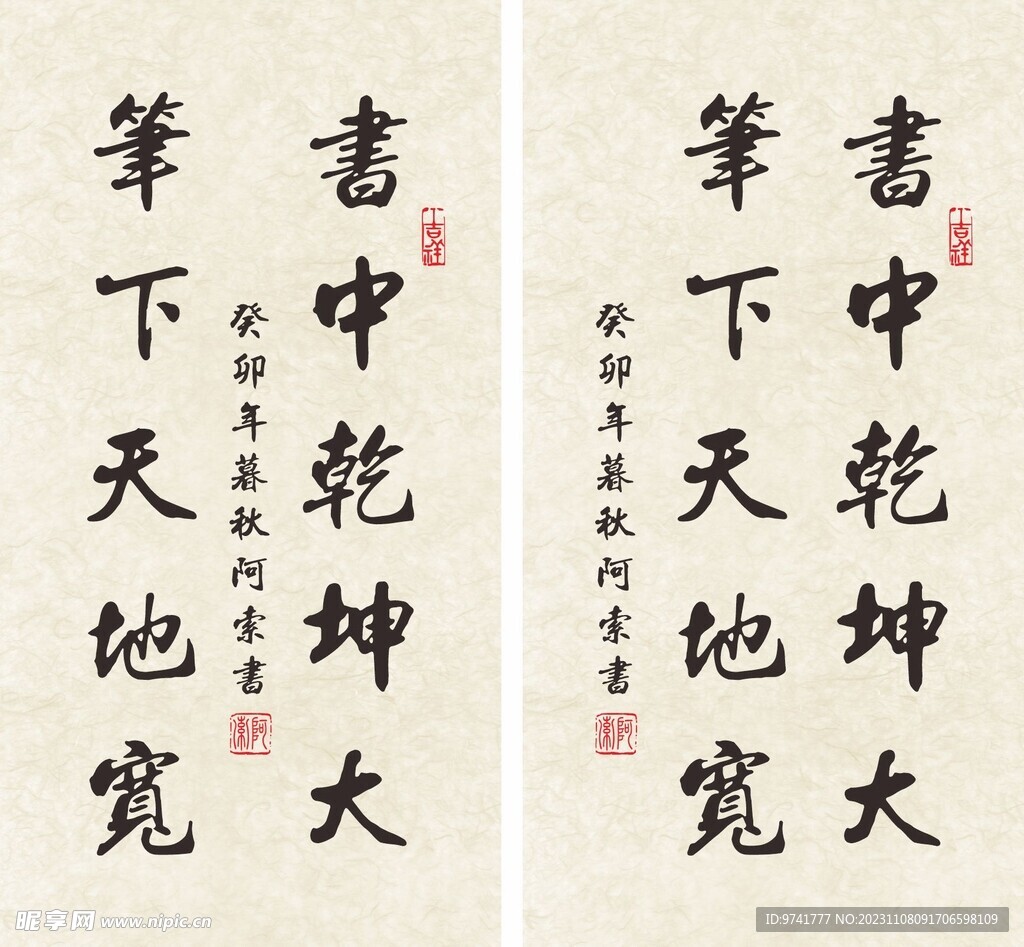 書中乾坤大
吉祥
癸卯年暮秋阿索書
阿索
筆下天地寬
書中乾坤大
吉祥
筆下天地寬
癸卯年暮秋阿索書
阿索
昵享网 www.nipic.cn
ID:9741777 NO:20231108091706598109